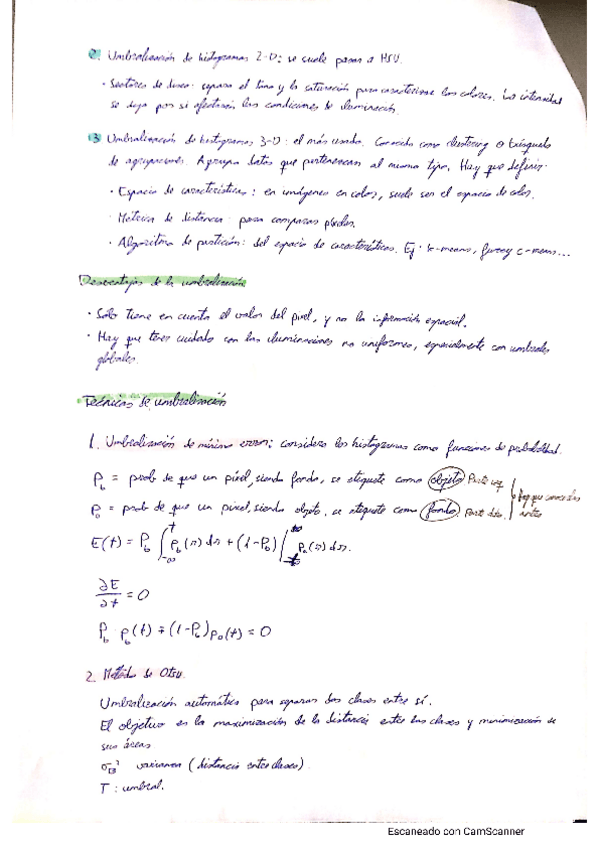 2. Umbralización de histogramas 2-D: se suele pasar a HSV.
· Sectores de disco: separa el tono y la saturación para caracterizar los colores. La intensidad
se deja por si afectaran las condiciones de iluminación.
3 Umbralización de histogramas 3-D: el más usado. Conocido como clustering o búsqueda
de agrupaciones. Agrupa datos que pertenezcan al mismo tipo. Hay que definir:
· Espacio de características: en imágenes en color, suele ser el espacio de color.
· Métrica de distancia: para comparar píxeles.
· Algoritmo de partición: del espacio de características. Ej: k-means, fuzzy c-means...
Desventajas de la umbralización
· Solo tiene en cuenta el valor del píxel, y no la información espacial.
· Hay que tener cuidado con las iluminaciones no uniformes, especialmente con umbrales
globales.
· Técnicas de umbralización
1. Umbralización de mínimo error: considera los histogramas como funciones de probabilidad.
P_b = prob de que un píxel, siendo fondo, se etiquete como objeto. Parte izq
P_o = prob de que un píxel, siendo objeto, se etiquete como fondo. Part dcha.
hay que conocerlas antes
E(t) = P_b ∫ p_b(s) ds + (1-P_b) ∫ p_o(s) ds.
∂E/∂t = 0
P_b p_b(t) + (1-P_b) p_o(t) = 0
2. Método de Otsu.
Umbralización automática para separar dos clases entre sí.
El objetivo es la maximización de la distancia entre las clases y minimización de
sus áreas.
σ_B² varianza (distancia entre clases).
T: umbral.
Escaneado con CamScanner